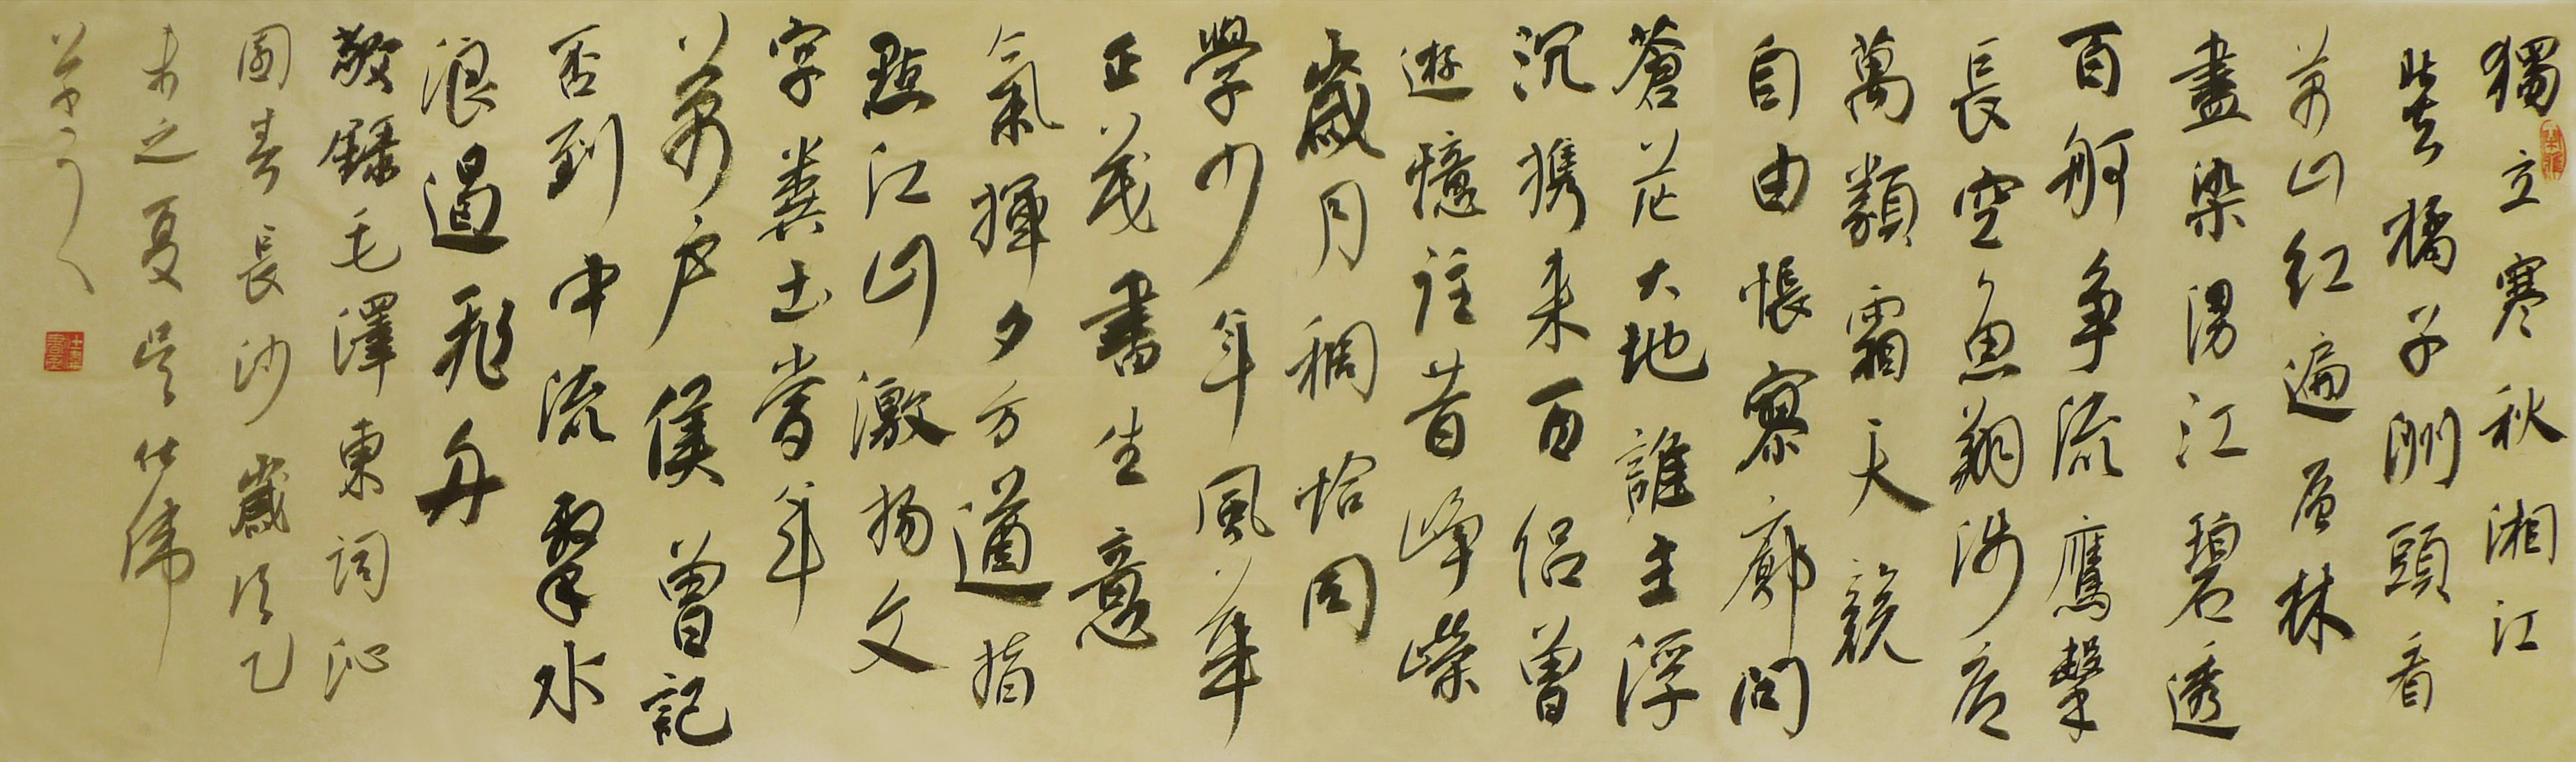 獨立寒秋湘江
北去橘子洲頭看
萬山红遍层林
盡染漫江碧透
百舸争流鷹擊
長空魚翔浅底
萬類霜天競
自由悵寥廓問
蒼茫大地誰主浮
沉携来百侣曾
遊憶往昔崢嶸
歲月稠恰同
學少年風華
正茂書生意
氣揮夕方遒指
點江山激揚文
字糞土當年
萬户侯曾記
否到中流擊水
浪遏飛舟
敬録毛澤東詞沁
園春長沙歲次乙
未之夏吴仕偉